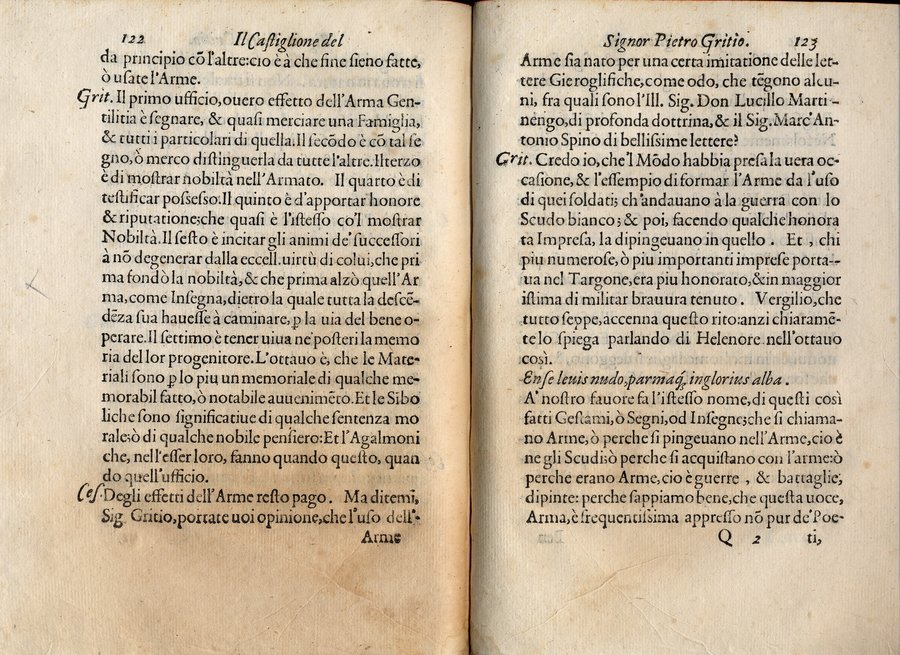 122 Il Castiglione del
da principio cõ l'altre: cio è à che fine sieno fatte,
ò usate l'Arme.
Grit. Il primo ufficio, ouero effetto dell'Arma Gen-
tilitia è segnare, & quasi merciare una Famiglia,
& tutti i particolari di quella. Il secõdo è cõ tal se
gno, ò merco distinguerla da tutte l'altre. Il terzo
è di mostrar nobiltà nell'Armato. Il quarto è di
testificar possesso. Il quinto è d'apportar honore
& riputatione; che quasi è l'istesso co'l mostrar
Nobiltà. Il sesto è incitar gli animi de' successori
à nõ degenerar dalla eccell. uirtù di colui, che pri
ma fondò la nobiltà, & che prima alzò quell'Ar
ma, come Insegna, dietro la quale tutta la descẽ-
dẽza sua hauesse à caminare, ꝑ la uia del bene o-
perare. Il settimo è tener uiua ne' posteri la memo
ria del lor progenitore. L'ottauo è, che le Mate-
riali sono ꝑ lo piu un memoriale di qualche me-
morabil fatto, ò notabile auuenimẽto. Et le Sibo
liche sono significatiue di qualche sentenza mo
rale; ò di qualche nobile pensiero: Et l'Agalmoni
che, nell'esser loro, fanno quando questo, quan
do quell'ufficio.
Ces. Degli effetti dell'Arme resto pago. Ma ditemi,
Sig. Gritio, portate uoi opinione, che l'uso dell'-
Arme
Signor Pietro Gritio. 123
Arme sia nato per una certa imitatione delle let-
tere Gieroglifiche, come odo, che tẽgono alcu-
ni, fra quali sono l'Ill. Sig. Don Lucillo Marti-
nengo, di profonda dottrina, & il Sig. Marc'An-
tonio Spino di bellissime lettere?
Grit. Credo io, che'l Mõdo habbia presa la uera oc-
casione, & l'essempio di formar l'Arme da l'uso
di quei soldati; ch'andauano à la guerra con lo
Scudo bianco; & poi, facendo qualche honora
ta Impresa, la dipingeuano in quello. Et, chi
piu numerose, ò piu importanti imprese porta-
ua nel Targone, era piu honorato, & in maggior
istima di militar brauura tenuto. Vergilio, che
tutto seppe, accenna questo rito: anzi chiaramẽ-
te lo spiega parlando di Helenore nell'ottauo
così.
Ense leuis nudo, parmaq; inglorius alba.
A' nostro fauore fa l'istesso nome, di questi così
fatti Gestami, ò Segni, od Insegne; che si chiama-
no Arme, ò perche si pingeuano nell'Arme, cio è
ne gli Scudi: ò perche si acquistano con l'arme: ò
perche erano Arme, cio è guerre, & battaglie;
dipinte: perche sappiamo bene, che questa uoce,
Arma, è frequentissima appresso nõ pur de' Poe-
Q 2 ti,